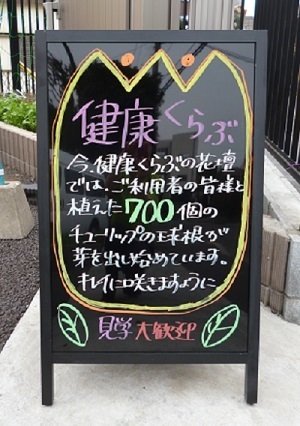 健康くらぶ
今、健康くらぶの花壇
では、ご利用者の皆様と
植えた700個の
チューリップの球根が
芽を出し始めています。
キレイに咲きますように
見学大歓迎